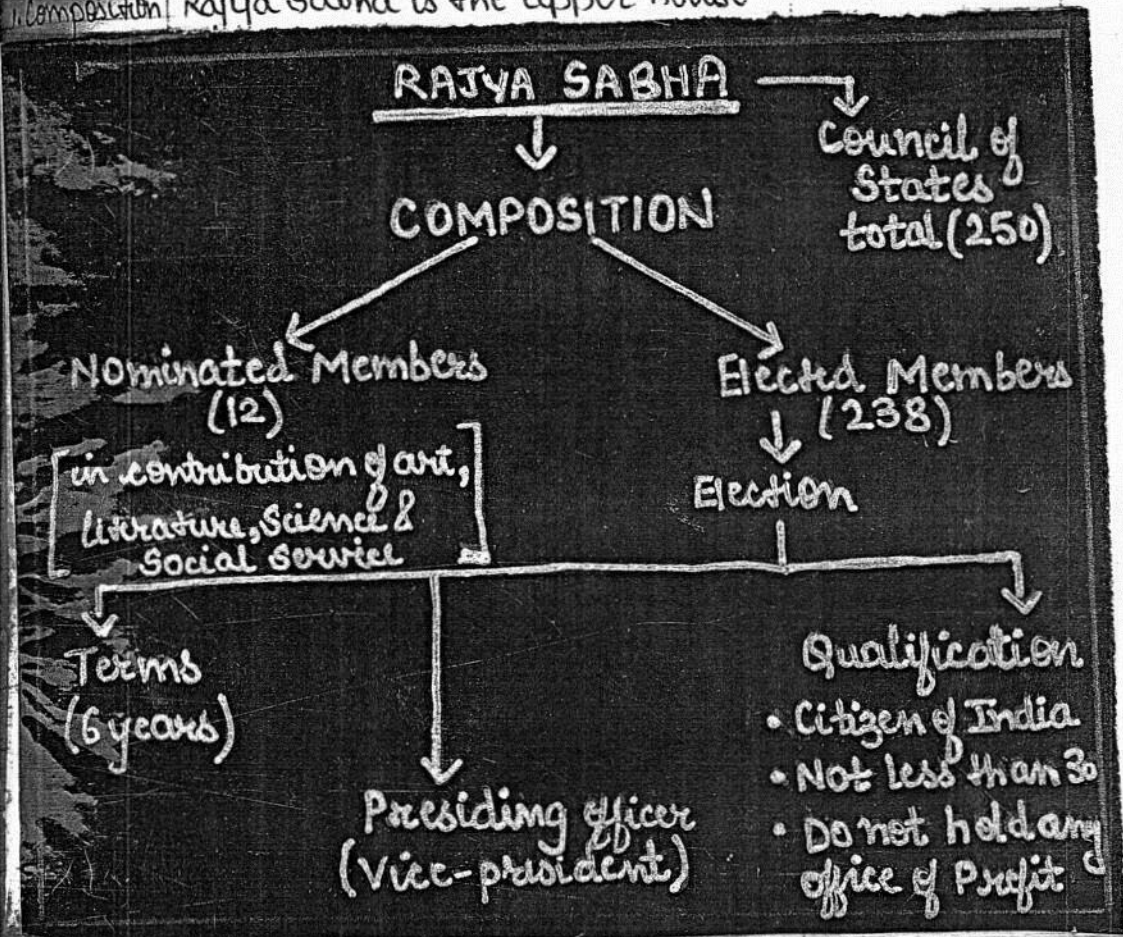 1. Composition Rajya Sabha is the upper house
RAJYA SABHA
Council of
States
total (250)
COMPOSITION
Nominated Members
(12)
Elected Members
(238)
[in contribution of art,
literature, Science &
Social Service]
Election
Terms
(6 years)
Presiding officer
(Vice-president)
Qualification
• Citizen of India
• Not less than 30
• Do not hold any
office of Profit